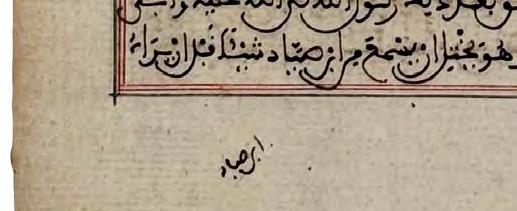 رسول الله صلى الله عليه و
وهو يختل ان يسمع من ابن صياد شيئا قبل ان يراه
ابن صياد